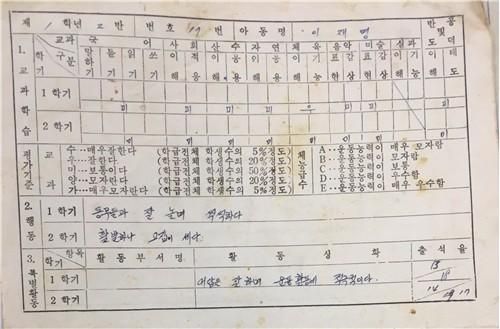 제 1 학년 2 반 번호 19 번 아동명 이재명
반공 및 도덕
1. 교과학습
교과 국어 사회 산수 자연 체육 음악 미술 실과
학기 구분 말하기 듣기 읽기 쓰기 이해 적응 이해 응용 이해 응용 이해 기능 표현 감상 표현 감상 이해 기능 이해 태도
1 학기
미 미 미 미 미 우 미 미
2 학기
평가기준
교과
수…매우잘한다 (학급전체 학생수의 5%정도)
우…잘한다 (학급전체 학생수의 20%정도)
미…보통이다 (학급전체 학생수의 50%정도)
양…모자란다 (학급전체 학생수의 20%정도)
가…매우모자란다 (학급전체 학생수의 5%정도)
체능급수
A…운동능력이 매우 모자람
B…운동능력이 모자람
C…운동능력이 보통
D…운동능력이 우수함
E…운동능력이 매우 우수함
2. 행동
1 학기 동무들과 잘 놀며 씩씩하다
2 학기 활발하나 고집이 세다.
3. 특별활동
학기 항목 활동부서명 활동상황 출석율
1 학기 대답은 잘 하며 운동 활동에 적극적이다.
2 학기